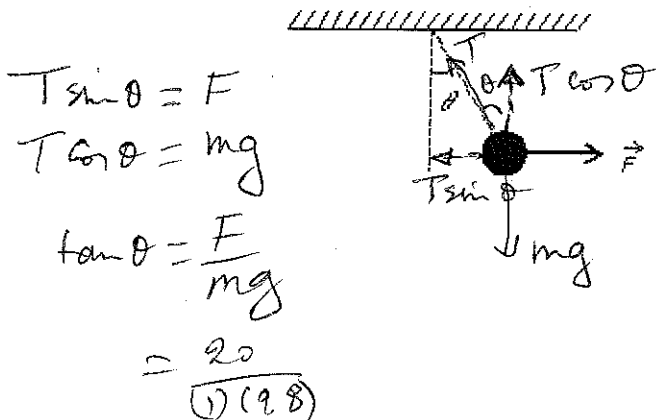 T sin θ = F
T cos θ = mg
tan θ = F / mg
= 20 / (1) (9.8)
T
θ
θ
T cos θ
F⃗
T sin θ
mg